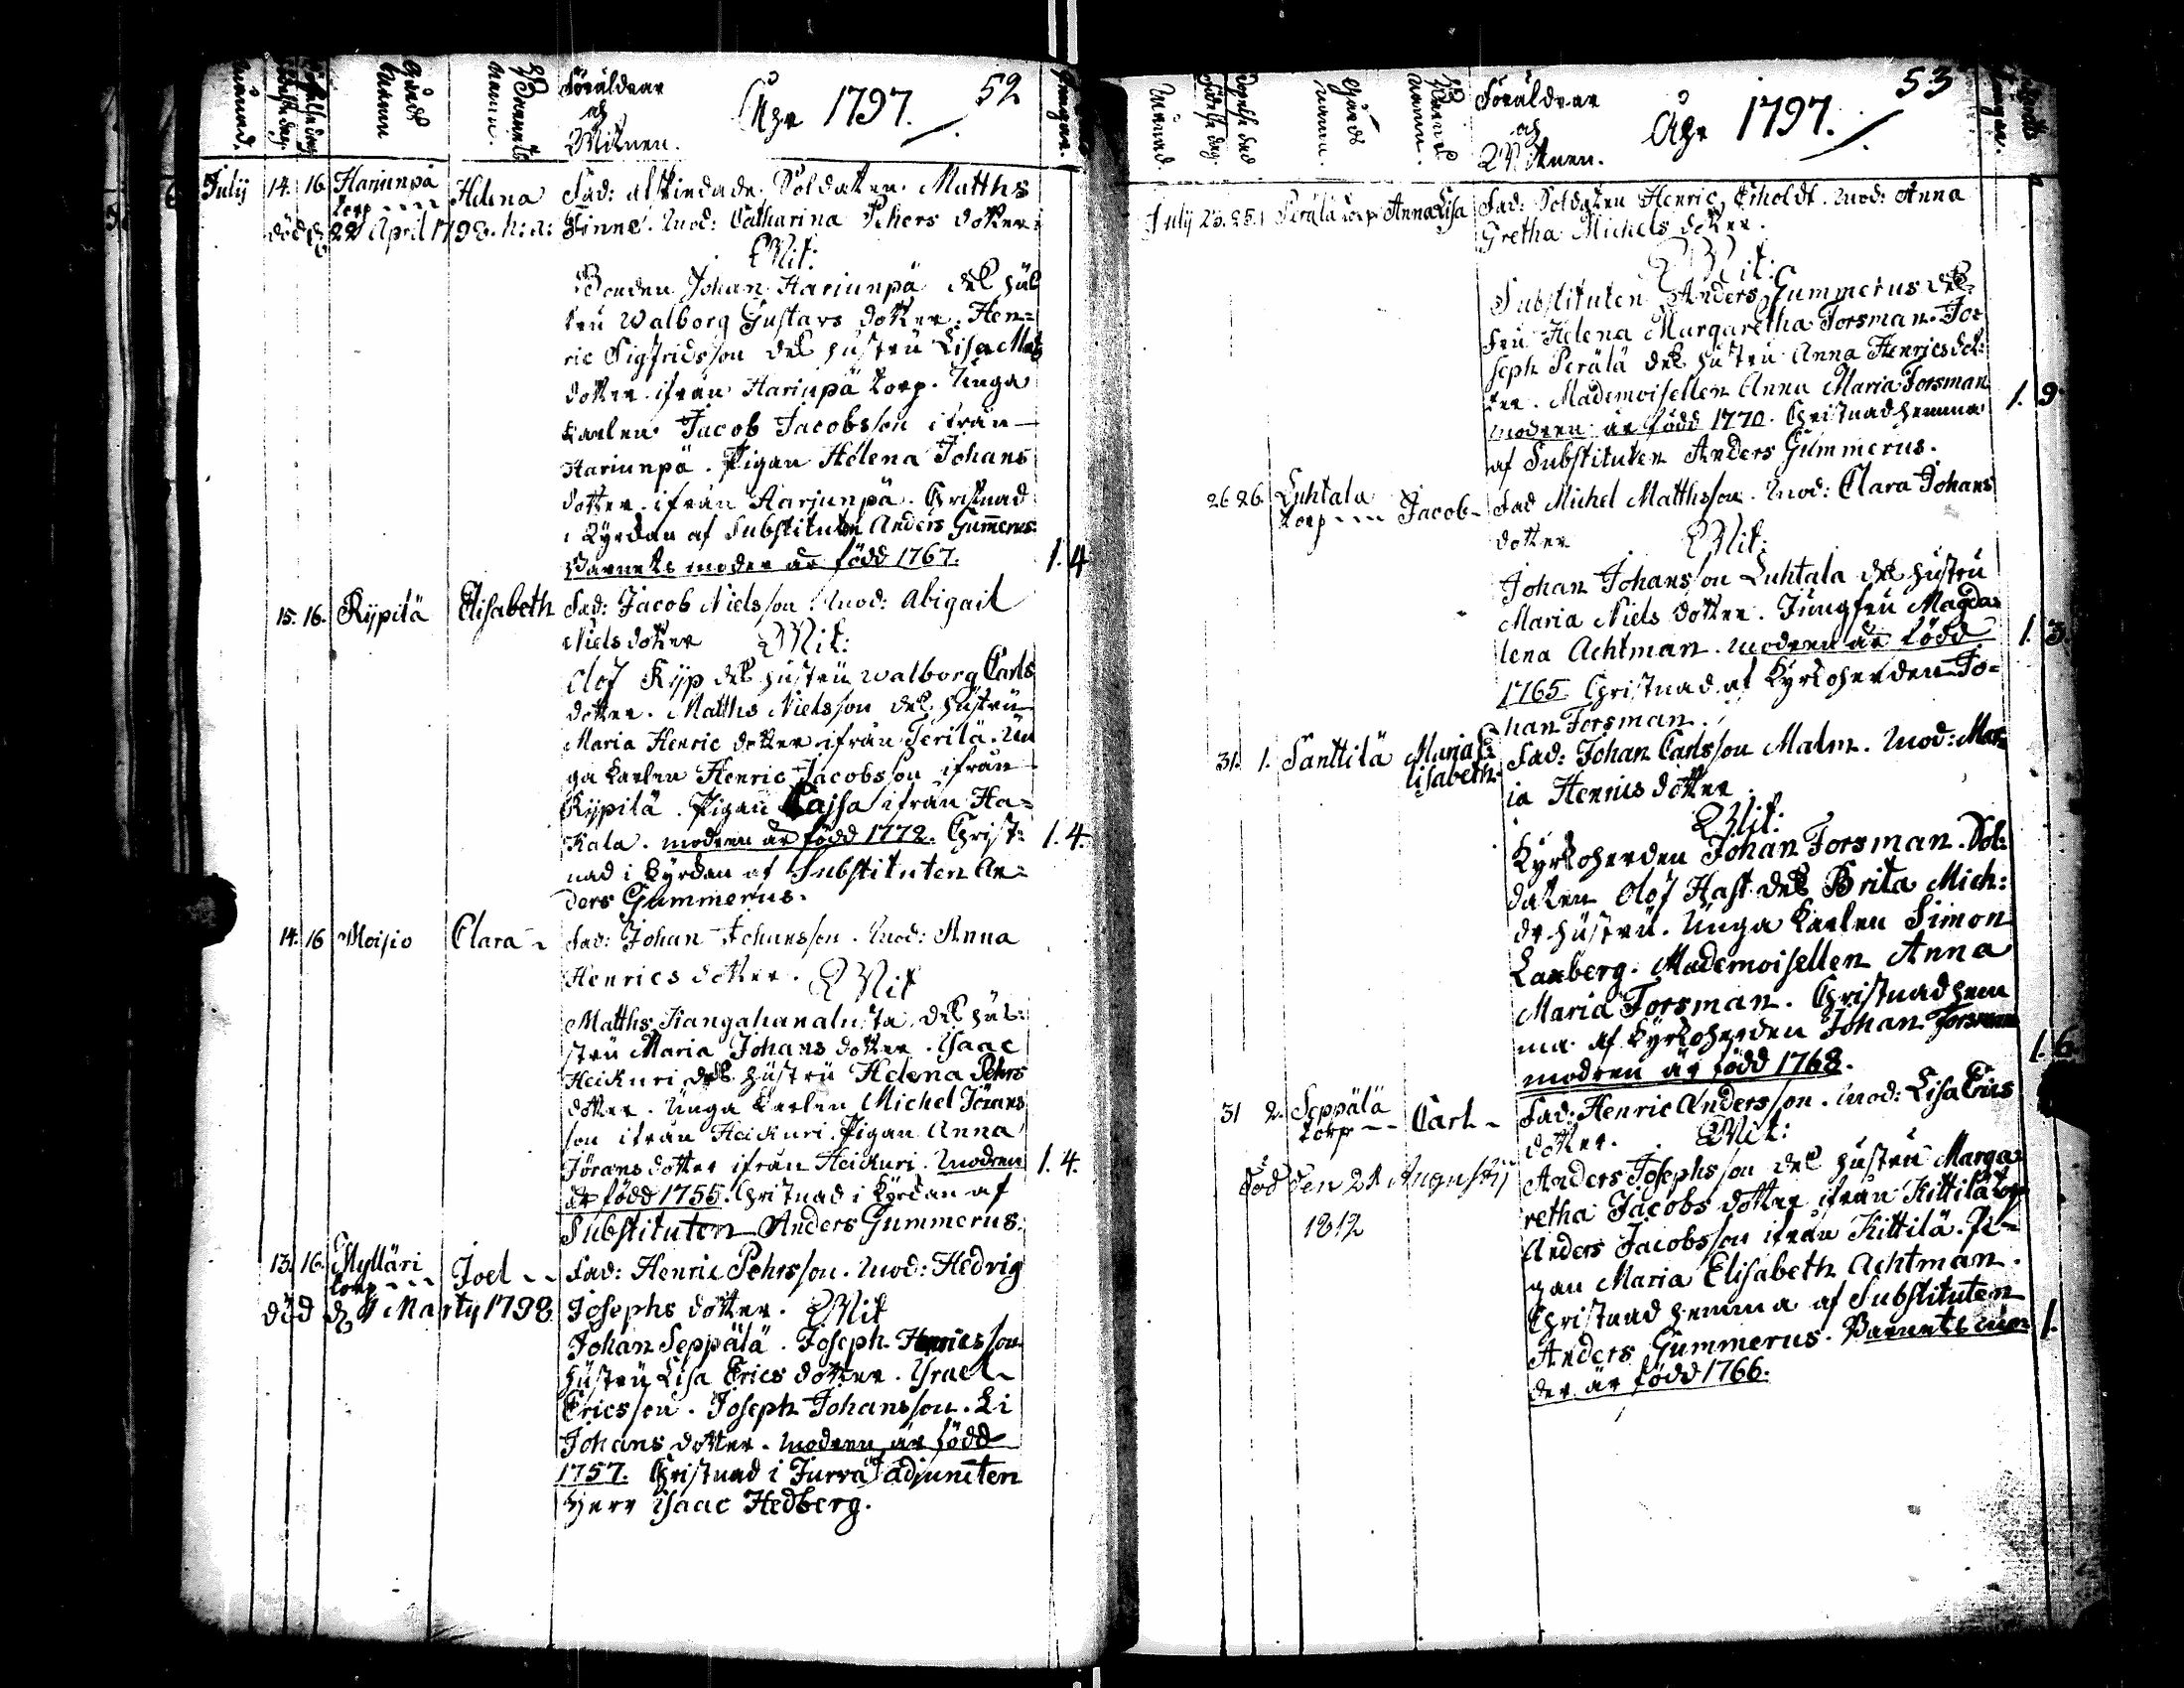 Månad.
Födelse dag.
Döpelse dag
Gårds namn
Barnets namn.
Föräldrar
och
Witnen.
Åhr 1797.
52
July 14. 16. Hariunpä torp Helena Fad: afskedade Soldaten Matths
död d. 22 April 1798. Finne. Mod: Catharina Pehrs dotter
Wit:
Bonden Johan Hariunpä dess hus
tru Walborg Gustavs dotter. Hen=
ric Sigfridsson dess hustru Lisa Mats
dotter ifrån Hariupä torp. Unga
karlen Jacob Jacobsson ifrån
Hariunpä. Pigan Helena Johans
dotter ifrån Harjunpä. Christnad
i Kyrkan af Substituten Anders Gummerus
Barnets moder är född 1767. 1. 4
15. 16. Rÿpilä Elisabeth Fad: Jacob Nielsson. Mod: Abigail
Niels dotter Wit:
Olof Rÿp dess hustru Walborg Carls
dotter. Matths Nielsson dess hustru
Maria Henric dotter ifrån Terilä. Un
ga karlen Henric Jacobsson ifrån
Rÿpilä. Pigan Cajsa ifrån Ha=
Kala. modren är född 1772. Christ= 1. 4.
nad i Kyrkan af Substituten An=
ders Gummerus.
14. 16 Moisio Clara Fad: Johan Johansson. Mod: Anna
Henrics dotter. Wit
Matths Kangahanalusta dess hus=
stru Maria Johans dotter. Isaac
Heickuri dess hustru Helena Pehrs
dotter. Unga karlen Michel Jörans
son ifrån Heickuri. Pigan Anna
Jörans dotter ifrån Heickuri. Modren 1. 4.
är född 1755. Christnad i Kyrkan af
Substituten Anders Gummerus.
13. 16. Mylläri torp Joel Fad: Henric Pehrsson. Mod: Hedvig
död d. 1 Marty 1798. Josephs dotter. Wit
Johan Seppälä. Joseph Henricsson
hustru Lisa Erics dotter. Israel
Ericsson. Joseph Johansson. Li
Johans dotter. modren är född
1757. Christnad i Jurva adjuncten
Herr Isaac Hedberg.
Månad
Födelse dag.
Döpelse dag
Gårds namn.
Barnets namn.
Föräldrar
och
Witnen.
Åhr 1797.
53
July 23. 25. Perälä torp Anna Lisa Fad: Soldaten Henric Erholdt. Mod: Anna
Gretha Michels dotter.
Wit:
Substituten Anders Gummerus dess
fru Helena Margaretha Forsman. Jo=
seph Perälä dess hustru Anna Henrics dot=
ter. Mademoisellen Anna Maria Forsman
modren är född 1770. Christnad hemma 1. 9.
af Substituten Anders Gummerus.
26 26. Luhtala torp Jacob Fad Michel Matthsson. Mod: Clara Johans
dotter Wit:
Johan Johansson Luhtala dess hustru
Maria Niels dotter. Jungfru Magda=
lena Achtman. modren är född 1. 3.
1765. Christnad af Kyrkoherden Jo=
han Forsman.
31. 1. Santtilä Maria E=lisabeth Fad: Johan Carlsson Malm. Mod: Mar=
ia Henrics dotter
Wit:
Kyrkoherden Johan Forsman. Sol=
daten Olof Hast dess Brita Mich:
dr hustru. Unga karlen Simon
Lanberg. Mademoisellen Anna
Maria Forsman. Christnad hem
ma af Kyrkoherden Johan Forsman
modren är född 1768. 1. 6.
31 2. Seppälä torp Carl Fad: Henric Andersson. Mod: Lisa Erics
dotter. Wit:
Död den 21 Augusty Anders Josephsson dess hustru Marga=
1812 retha Jacobs dotter ifrån Kittilä torp
Anders Jacobsson ifrån Kittilä. Pi=
gan Maria Elisabeth Achtman.
Christnad hemma af Substituten
Anders Gummerus. Barnets mo= 1.
der är född 1766.